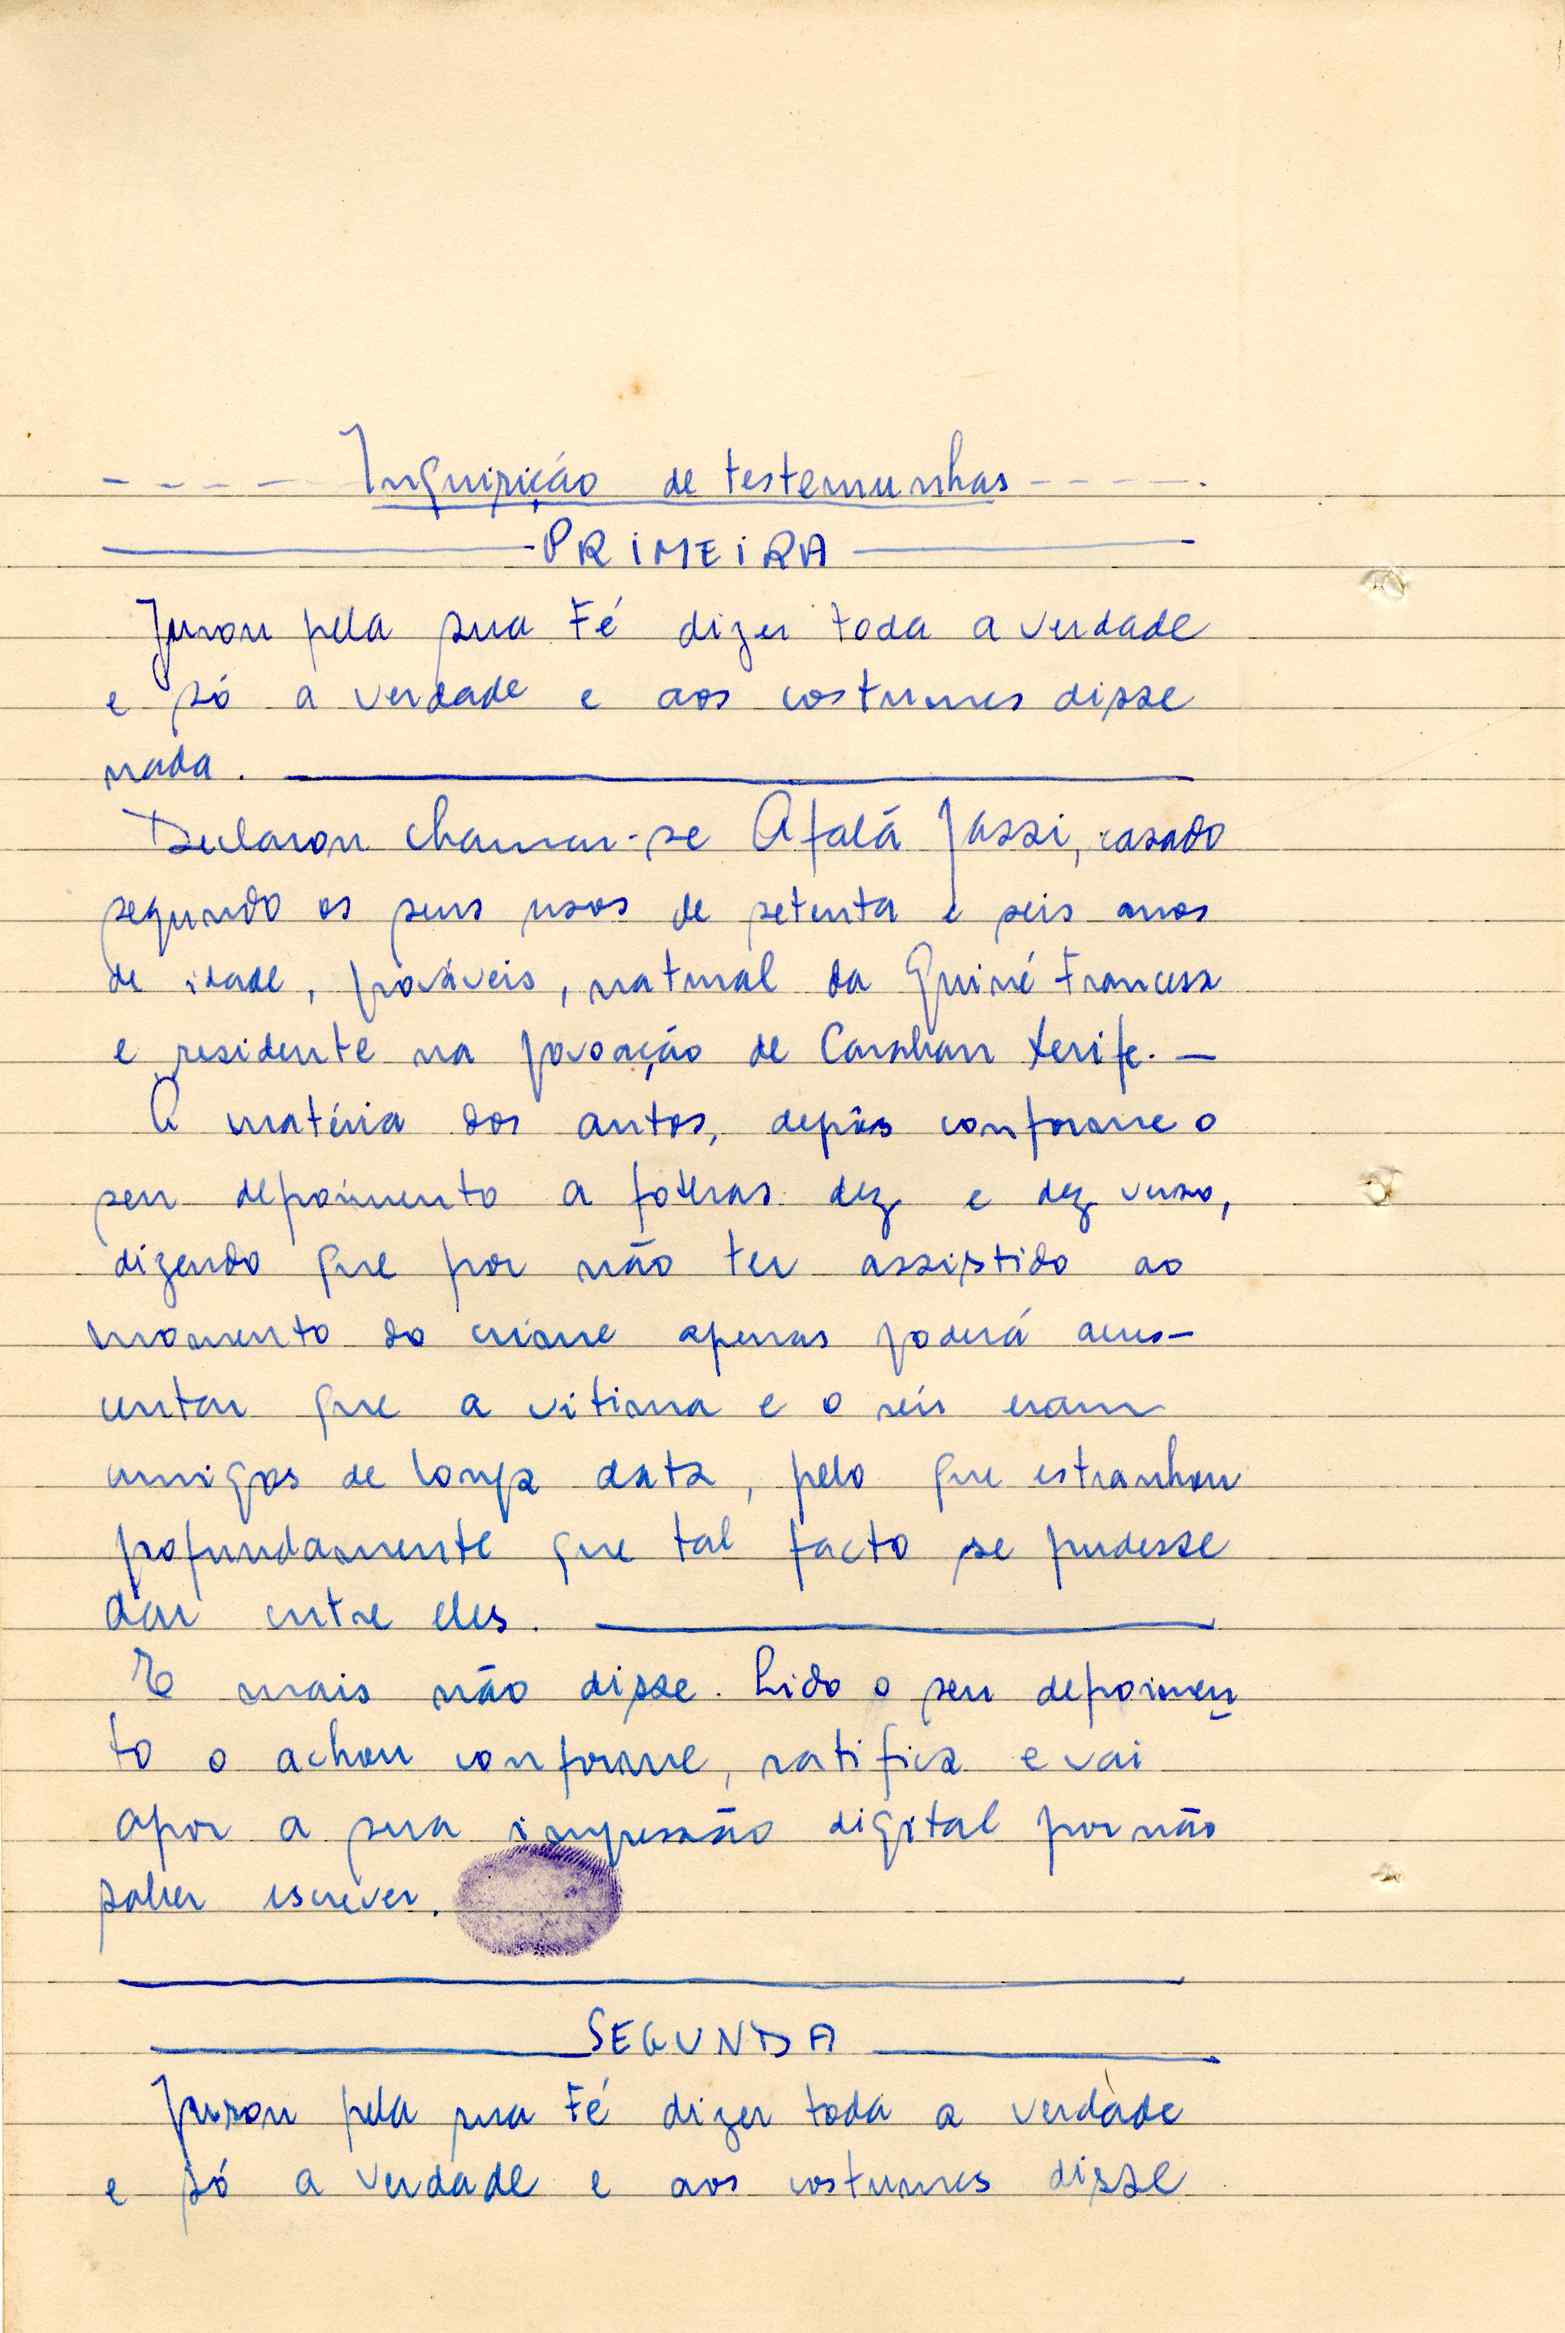 - - - - Inquirição de testemunhas - - - -
PRIMEIRA
Jurou pela sua Fé dizer toda a verdade
e só a verdade e aos costumes disse
nada.
Declarou chamar-se Afalá Jassi, casado
segundo os seus usos de setenta e seis anos
de idade, prováveis, natural da Guiné Francesa
e residente na povoação de Xerife. —
À matéria dos autos, depôs conforme o
seu depoimento a folhas dez e dez verso,
dizendo que por não ter assistido ao
momento do crime apenas poderá acres-
centar que a vitima e o réu eram
amigos de longa data, pelo que estranhou
profundamente que tal facto se pudesse
dar entre eles.
E mais não disse. Lido o seu depoimen
to o achou conforme, ratifica e vai
apor a sua impressão digital por não
saber escrever.
SEGUNDA
Jurou pela sua Fé dizer toda a verdade
e só a verdade e aos costumes disse